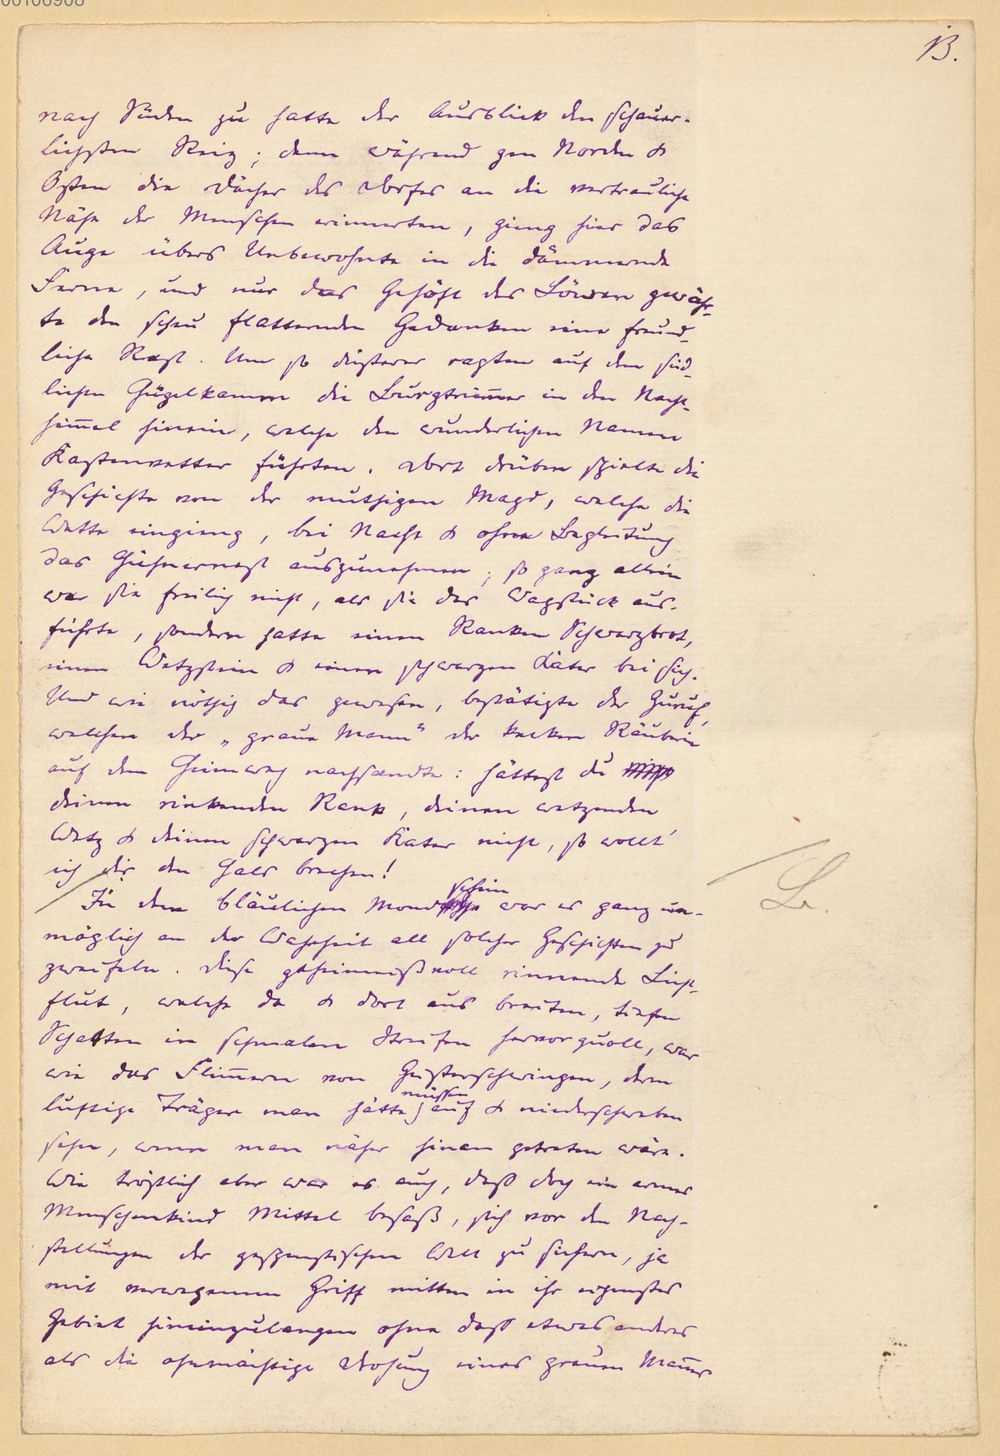 00106908
13.
nach Süden zu hatte der Ausblick den schauer-
lichsten Reiz; denn während gen Norden &
Osten die Dächer des Dorfes an die vertrauliche
Nähe der Menschen erinnerten, gieng hier das
Auge übers Unbewohnte in die dämmernde
Ferne, und nur das Gehöft des Löwen gewähr-
te den scheu flatternden Gedanken eine freund-
liche Rast. Um so düsterer ragten auf dem süd-
lichen Hügelkamm die Burgtrüm̅er in den Nacht-
him̅el hinein, welche den wunderlichen Namen
Kastenvetter führten. Dort drüben spielte die
Geschichte von der muthigen Magd, welche die
Wette eingieng, bei Nacht & ohne Begleitung
das Hühnernest auszunehmen; so ganz allein
war sie freilich nicht, als sie das Wagstück aus-
führte, sondern hatte einen Ranken Schwarzbrot,
einen Wetzstein & einen schwarzen Kater bei sich.
Und wie nöthig das gewesen, bestätigte der Zuruf,
welchen der „graue Mann“ der kecken Räuberin
auf dem Heimweg nachsandte: hättest du
deinen rinkenden Rank, deinen wetzenden
Wetz & deinen schwarzen Kater nicht, so wollt'
ich dir den Hals brechen!
In dem bläulichen Mondschein war es ganz un-
möglich an der Wahrheit all solcher Geschichten zu
zweifeln. Diese geheimnißvoll rinnende Licht-
flut, welche da & dort aus breiten, tiefen
Schatten in schmalen Streifen hervorquoll, war
wie das Flim̅ern von Geisterschwingen, deren
luftige Träger man hätte müssen auf & niederschweben
sehn, wenn man näher hinan getreten wäre.
Wie tröstlich aber war es auch, daß doch ein armes
Menschenkind Mittel besaß, sich vor den Nach-
stellungen der gespenstischen Welt zu sichern, ja
mit verwegenem Griff mitten in ihr eigenstes
Gebiet hineinzulangen ohne daß etwas anderes
als die ohnmächtige Drohung eines grauen Man̅es